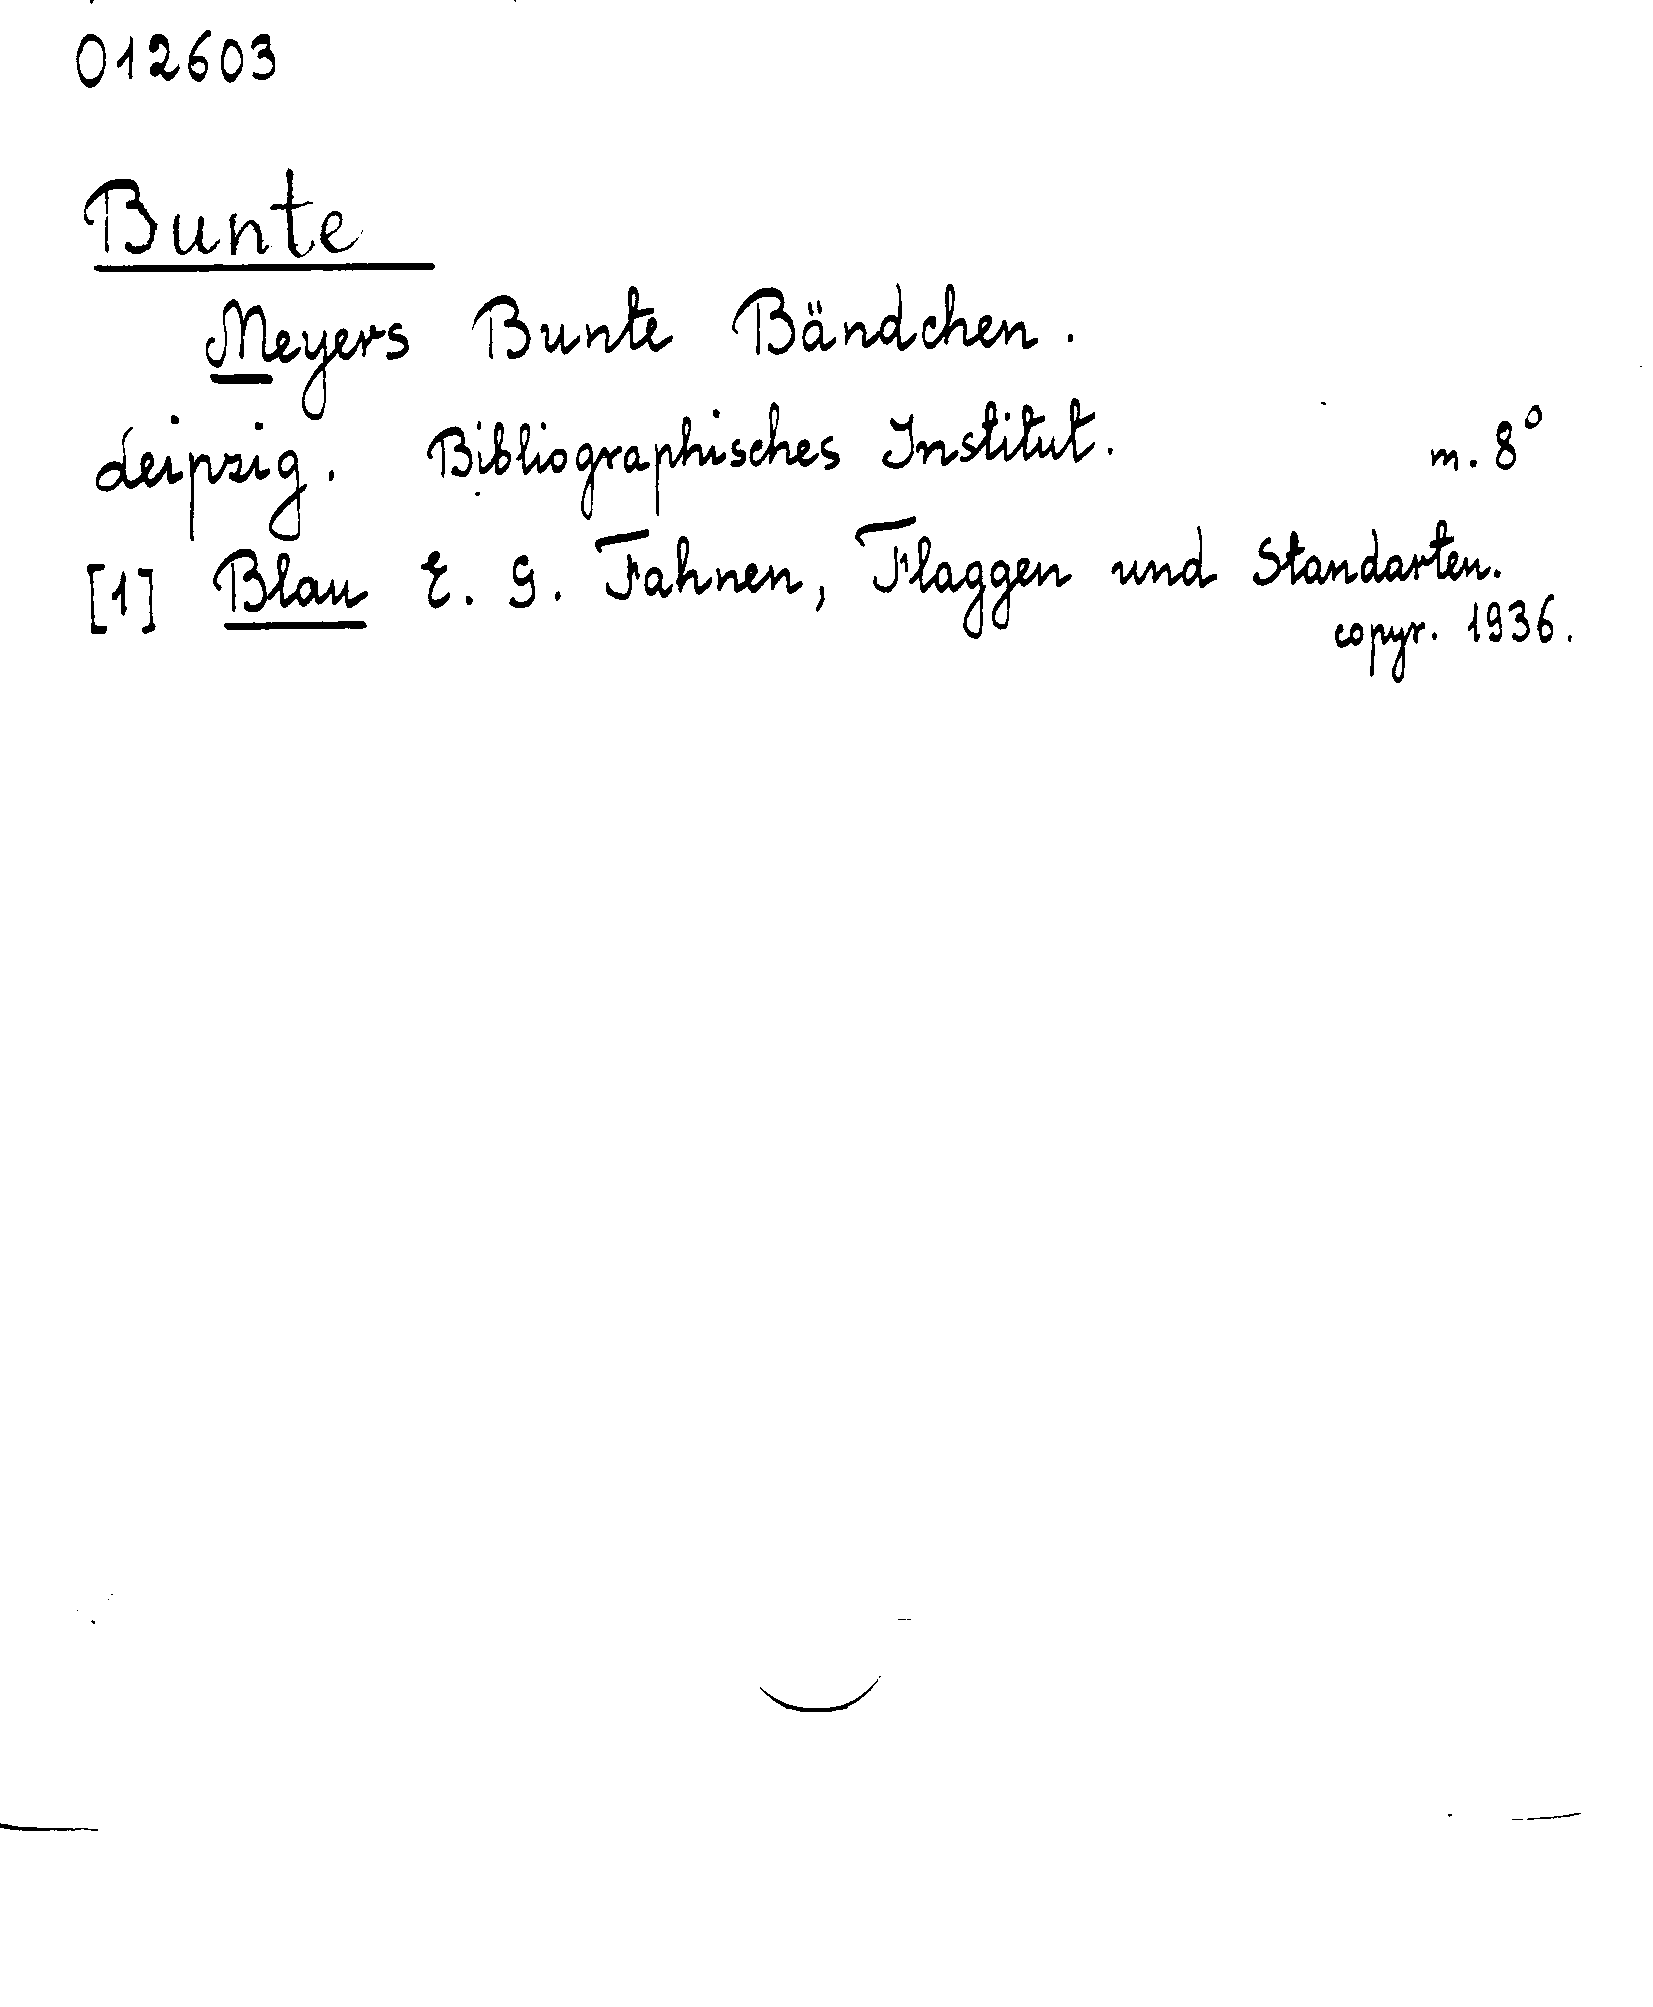 012603
Bunte
Meyers Bunte Bändchen.
Leipzig. Bibliographisches Institut. m. 8°
[1] Blau E. G. Fahnen, Flaggen und Standarten.
copyr. 1936.